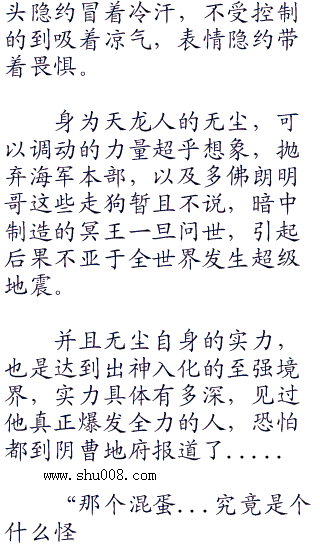 头隐约冒着冷汗，不受控制
的到吸着凉气，表情隐约带
着畏惧。
身为天龙人的无尘，可
以调动的力量超乎想象，抛
弃海军本部，以及多佛朗明
哥这些走狗暂且不说，暗中
制造的冥王一旦问世，引起
后果不亚于全世界发生超级
地震。
并且无尘自身的实力，
也是达到出神入化的至强境
界，实力具体有多深，见过
他真正爆发全力的人，恐怕
都到阴曹地府报道了.....
www.shu008.com
“那个混蛋...究竟是个
什么怪